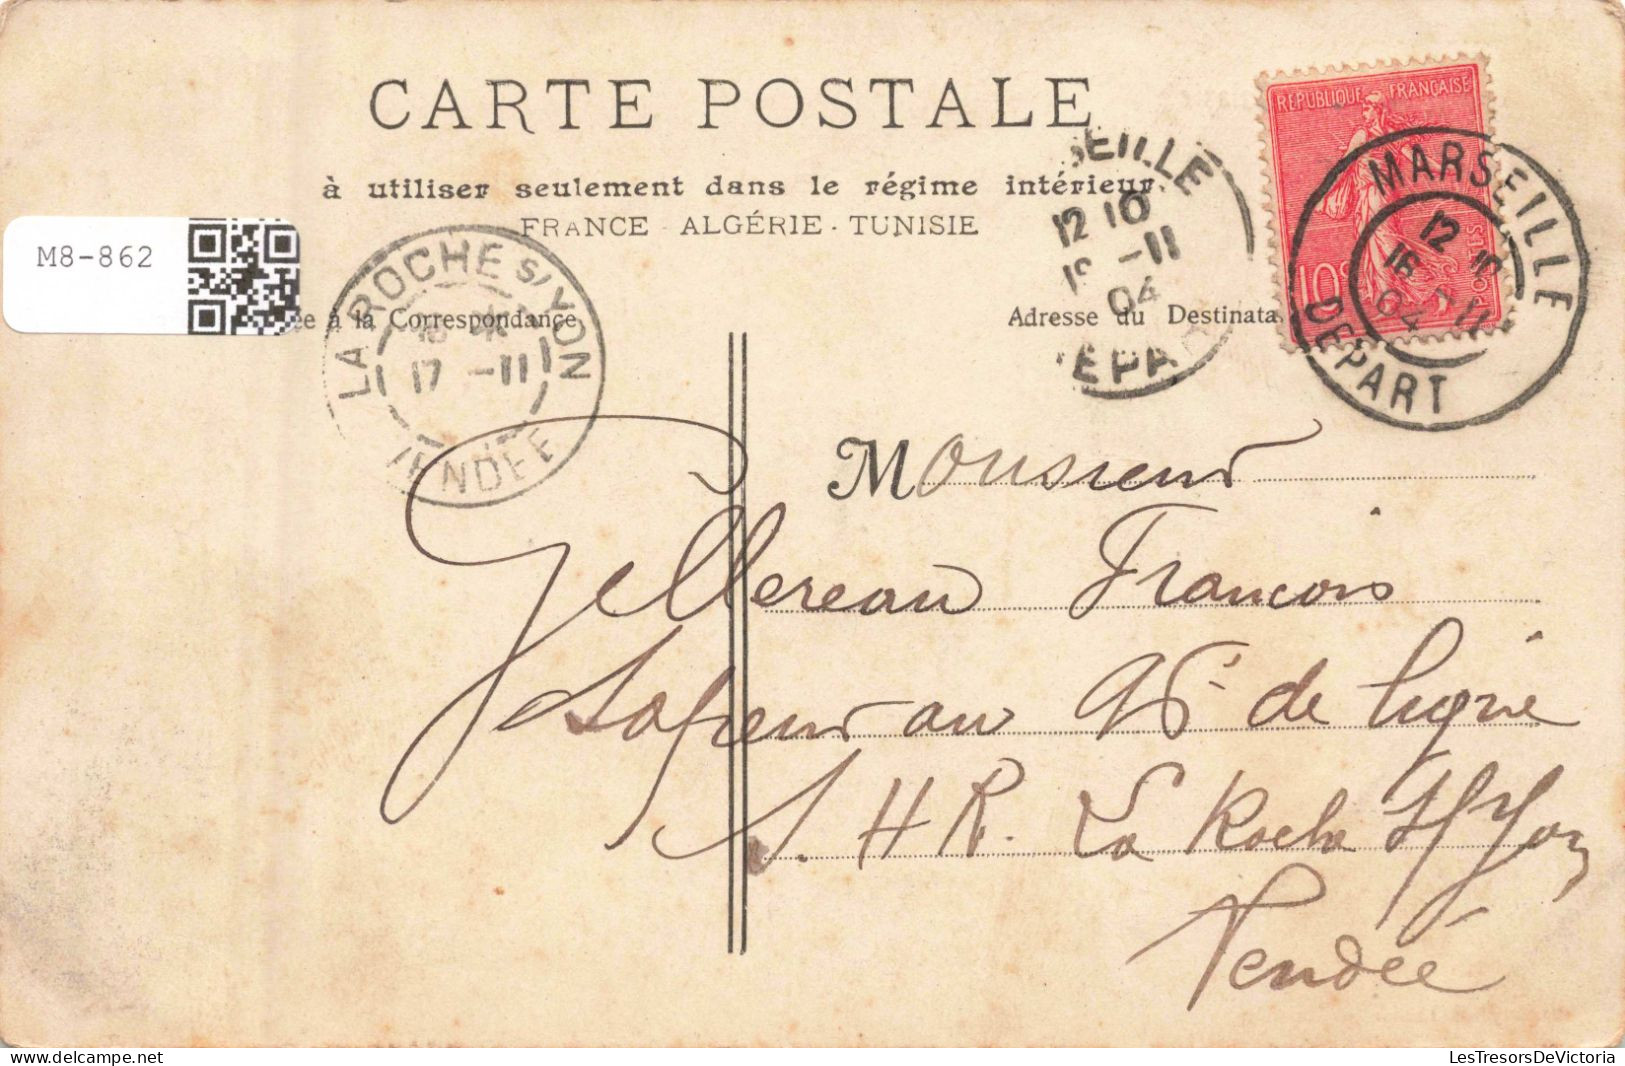 CARTE POSTALE
à utiliser seulement dans le régime intérieur
FRANCE - ALGÉRIE - TUNISIE
M8-862
ée à la Correspondance
Adresse du Destinata
RÉPUBLIQUE FRANÇAISE
POSTES
10c
MARSEILLE
12
16 -11
04
DEPART
SEILLE
12 10
-11
04
EPA
LA ROCHE S/YON
17 -11
VENDÉE
Monsieur
Gellereau Francois
Sapeur au 93e de ligne
S. H. R. La Roche s/ Yon
Vendée
LesTresorsDeVictoria